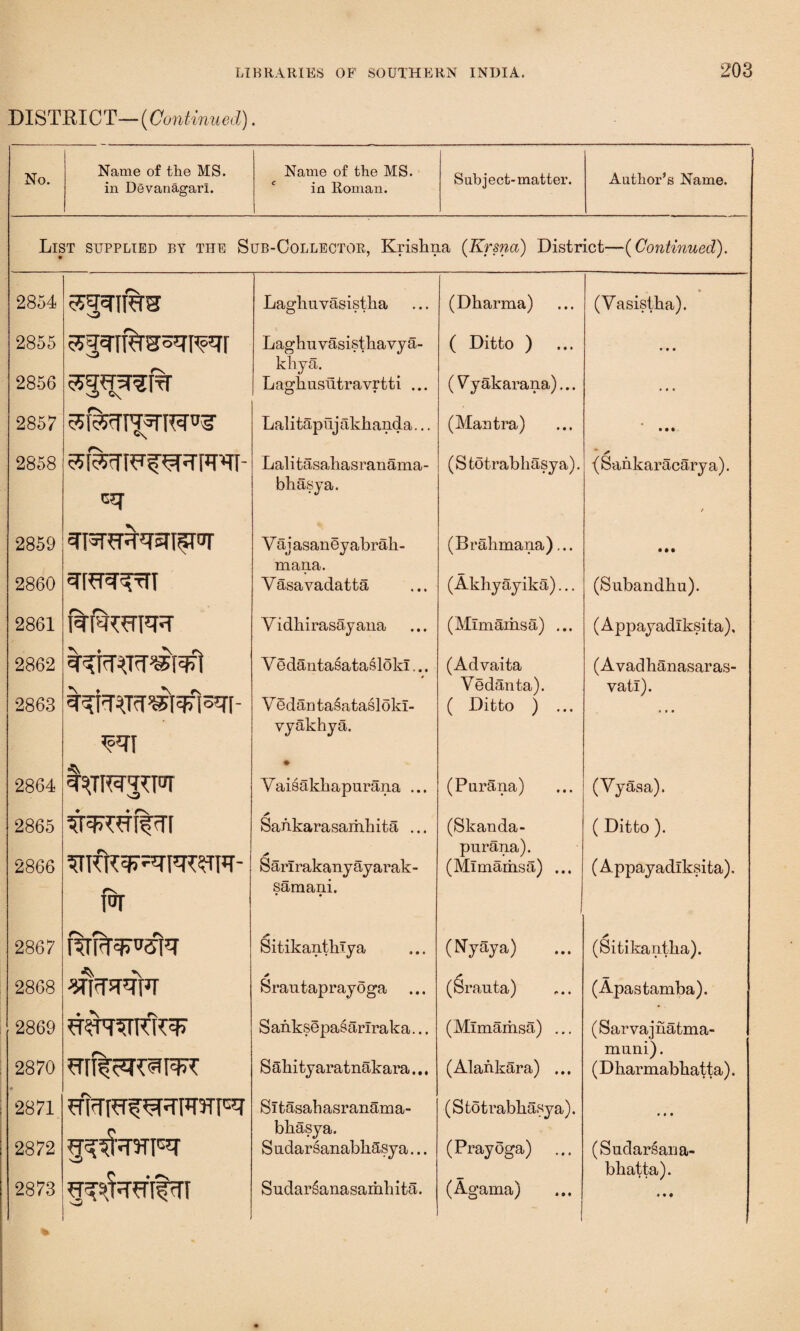 LIBRARIES OF SOUTHERN INDIA. 203
DISTRICT—(Continued).
No. Name of the MS. in Dêvanâgarî. Name of the MS. in Roman. Subject-matter. Author's Name.
List supplied by the Sub-Collector, Krishna (Kṛṣṇa) District—(Continued).
2854 लघुवासिष्ठ Laghuvāsiṣṭha ... (Dharma) ... (Vasiṣṭha).
2855 लघुवासिष्ठव्याख्या Laghuvāsiṣṭhavyā- ( Ditto ) ... ...
khyā.
2856 लघुसूत्रवृत्ति Laghusūtravṛtti ... (Vyākaraṇa)... ...
2857 ललितापूजाखण्ड Lalitāpūjākhaṇḍa... (Mantra) ... ...
2858 ललितासहस्रनामभा- Lalitāsahasranāma- (Stōtrabhāṣya). (Śaṅkarācārya).
ष्य bhāṣya.
2859 वाजसनेयब्राह्मण Vājasanēyabrāh- (Brāhmaṇa)... ...
maṇa.
2860 वासवदत्ता Vāsavadattā ... (Ākhyāyikā)... (Subandhu).
2861 विधिरसायन Vidhirasāyana ... (Mīmāṁsā) ... (Appayadīkṣita).
2862 वेदान्तशतश्लोकी Vēdāntaśataślōkī... (Advaita (Avadhānasaras-
Vēdānta). vatī).
2863 वेदान्तशतश्लोकीव्या- Vēdāntaśataślōkī- ( Ditto ) ... ...
ख्या vyākhyā.
2864 वैशाखपुराण Vaiśākhapurāṇa ... (Purāṇa) ... (Vyāsa).
2865 शंकरसंहिता Śaṅkarasaṁhitā ... (Skanda- ( Ditto ).
purāṇa).
2866 शारीरकन्यायरक्षाम- Śārīrakanyāyarak- (Mīmāṁsā) ... (Appayadīkṣita).
णि ṣāmaṇi.
2867 शितिकण्ठीय Śitikaṇṭhīya ... (Nyāya) ... (Śitikaṇṭha).
2868 श्रौतप्रयोग Śrautaprayōga ... (Śrauta) ... (Āpastamba).
2869 संक्षेपशारीरक Saṅkṣēpaśārīraka... (Mīmāṁsā) ... (Sarvajñātma-
muni).
2870 साहित्यरत्नाकर Sāhityaratnākara... (Alaṅkāra) ... (Dharmabhaṭṭa).
2871 सीतासहस्रनामभाष्य Sītāsahasranāma- (Stōtrabhāṣya). ...
bhāṣya.
2872 सुदर्शनभाष्य Sudarśanabhāṣya... (Prayōga) ... (Sudarśana-
bhaṭṭa).
2873 सुदर्शनसंहिता Sudarśanasaṁhitā. (Āgama) ... ...